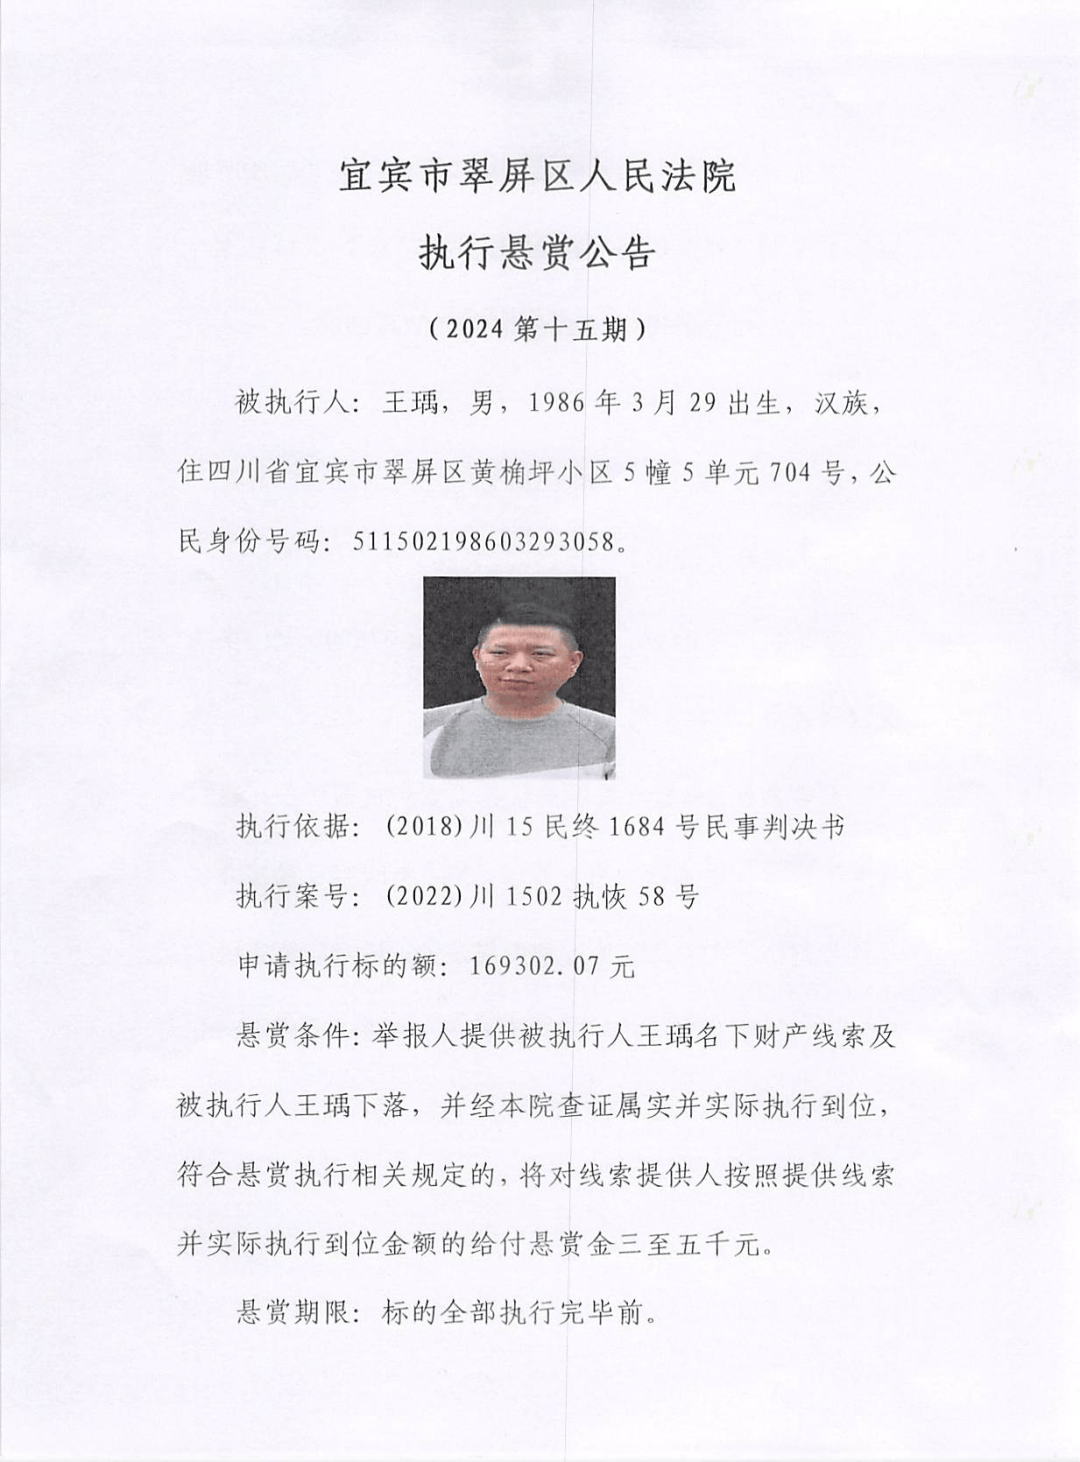 宜宾市翠屏区人民法院
执行悬赏公告
（2024 第十五期）
被执行人：王瑀，男，1986 年 3 月 29 出生，汉族，
住四川省宜宾市翠屏区黄桷坪小区 5 幢 5 单元 704 号，公
民身份号码：511502198603293058。
执行依据：(2018)川 15 民终 1684 号民事判决书
执行案号：(2022)川 1502 执恢 58 号
申请执行标的额：169302.07 元
悬赏条件：举报人提供被执行人王瑀名下财产线索及
被执行人王瑀下落，并经本院查证属实并实际执行到位，
符合悬赏执行相关规定的，将对线索提供人按照提供线索
并实际执行到位金额的给付悬赏金三至五千元。
悬赏期限：标的全部执行完毕前。